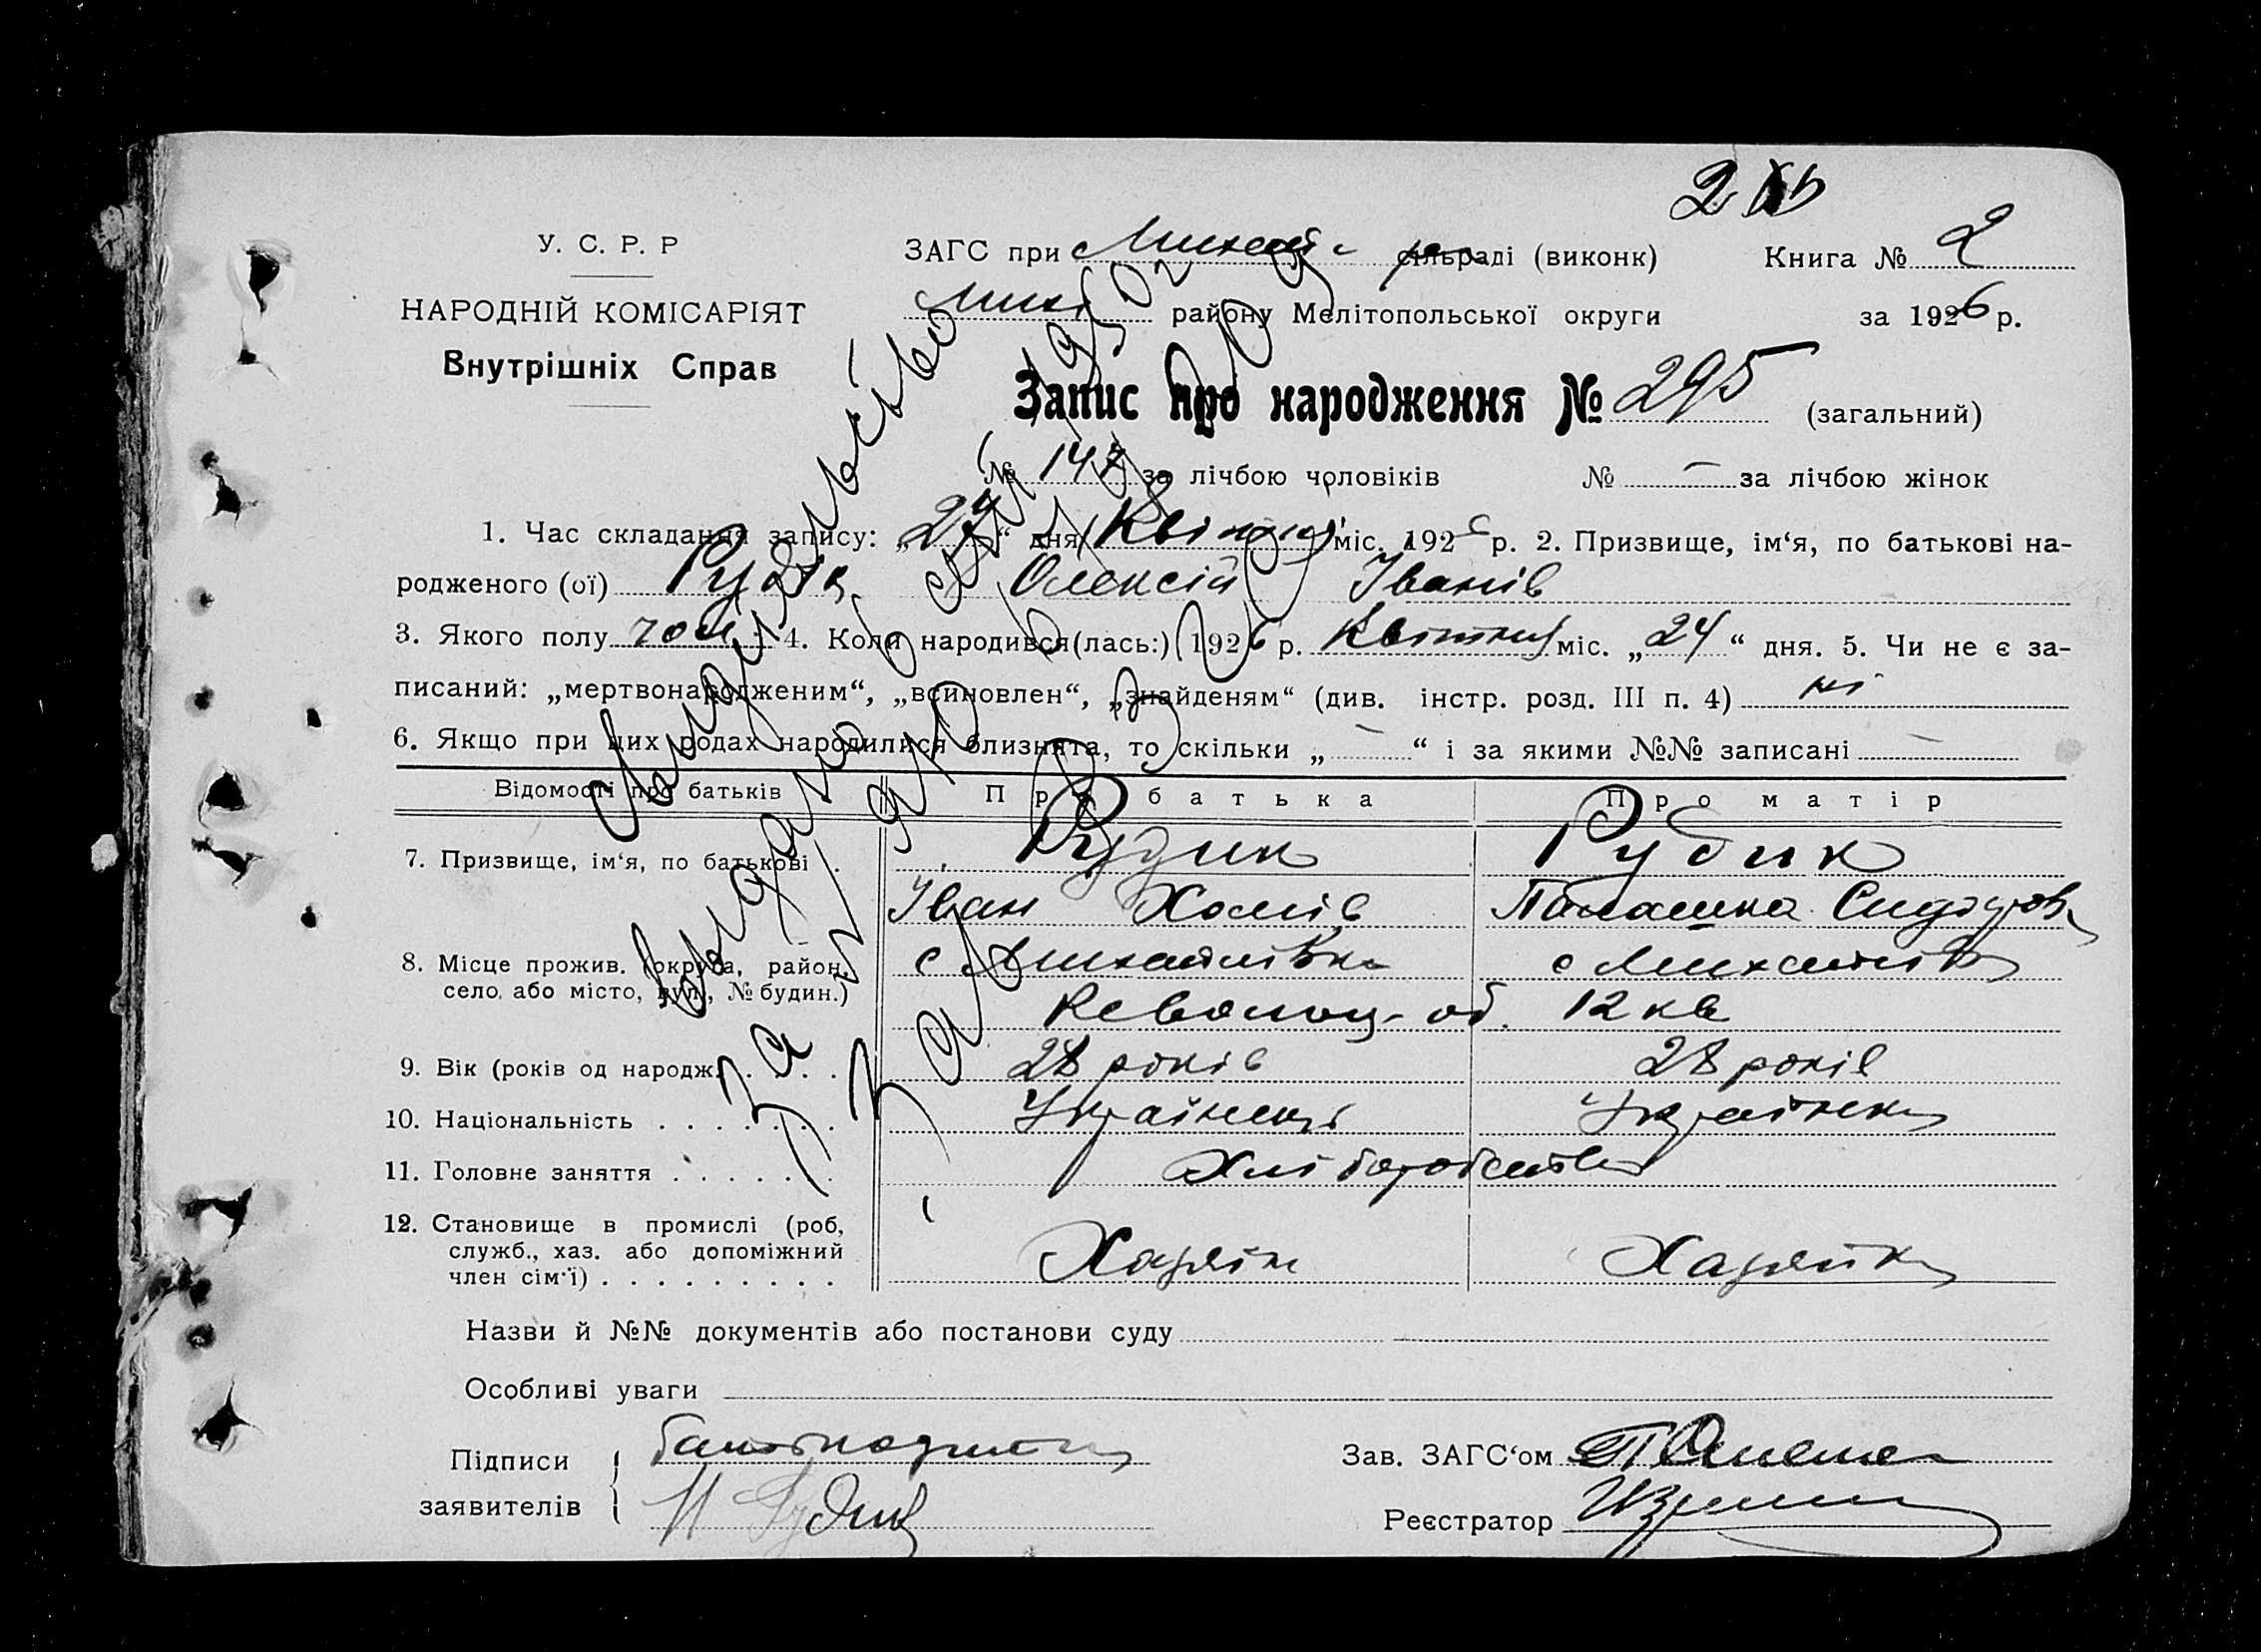 У. С. Р. Р
НАРОДНІЙ КОМІСАРІЯТ
Внутрішніх Справ
ЗАГС при сільраді (виконк) Книга № 2
району Мелітопольської округи за 1926 р.
Запис про народження № 295 (загальний)
№ 147 за лічбою чоловіків № — за лічбою жінок
1. Час складання запису: „27“ дня Квітня міс. 1926 р. 2. Призвище, ім‘я, по батькові на-
родженого (ої) Рудик Олексій Іванів
3. Якого полу чол. 4. Коли народився(лась:) 1926 р. Квітня міс. „24“ дня. 5. Чи не є за-
писаний: „мертвонародженим“, „всиновлен“, „знайденям“ (див. інстр. розд. III п. 4) ні
6. Якщо при цих родах народилися близнята, то скільки „—“ і за якими №№ записані —
Відомості про батьків Про батька Про матір
7. Призвище, ім‘я, по батькові . Рудик Рудик
Іван Хомів Палашка
8. Місце прожив. (округа, район, с Михайлівка с Михайлівка
село або місто, вул., № будин.) Революц. об. 12 кв
9. Вік (років од народж. . . . . 28 років 28 років
10. Національність . . . . . . . Українець Українка
11. Головне заняття . . . . . . . Хліборобство
12. Становище в промислі (роб, служб., хаз. або допоміжний член сім‘ї) . . . . . . . . . Хазяїн Хазяйка
Назви й №№ документів або постанови суду
Особливі уваги
Підписи
заявителів
Рудик
Зав. ЗАГС‘ом
Реєстратор
Свидетельство
выдано